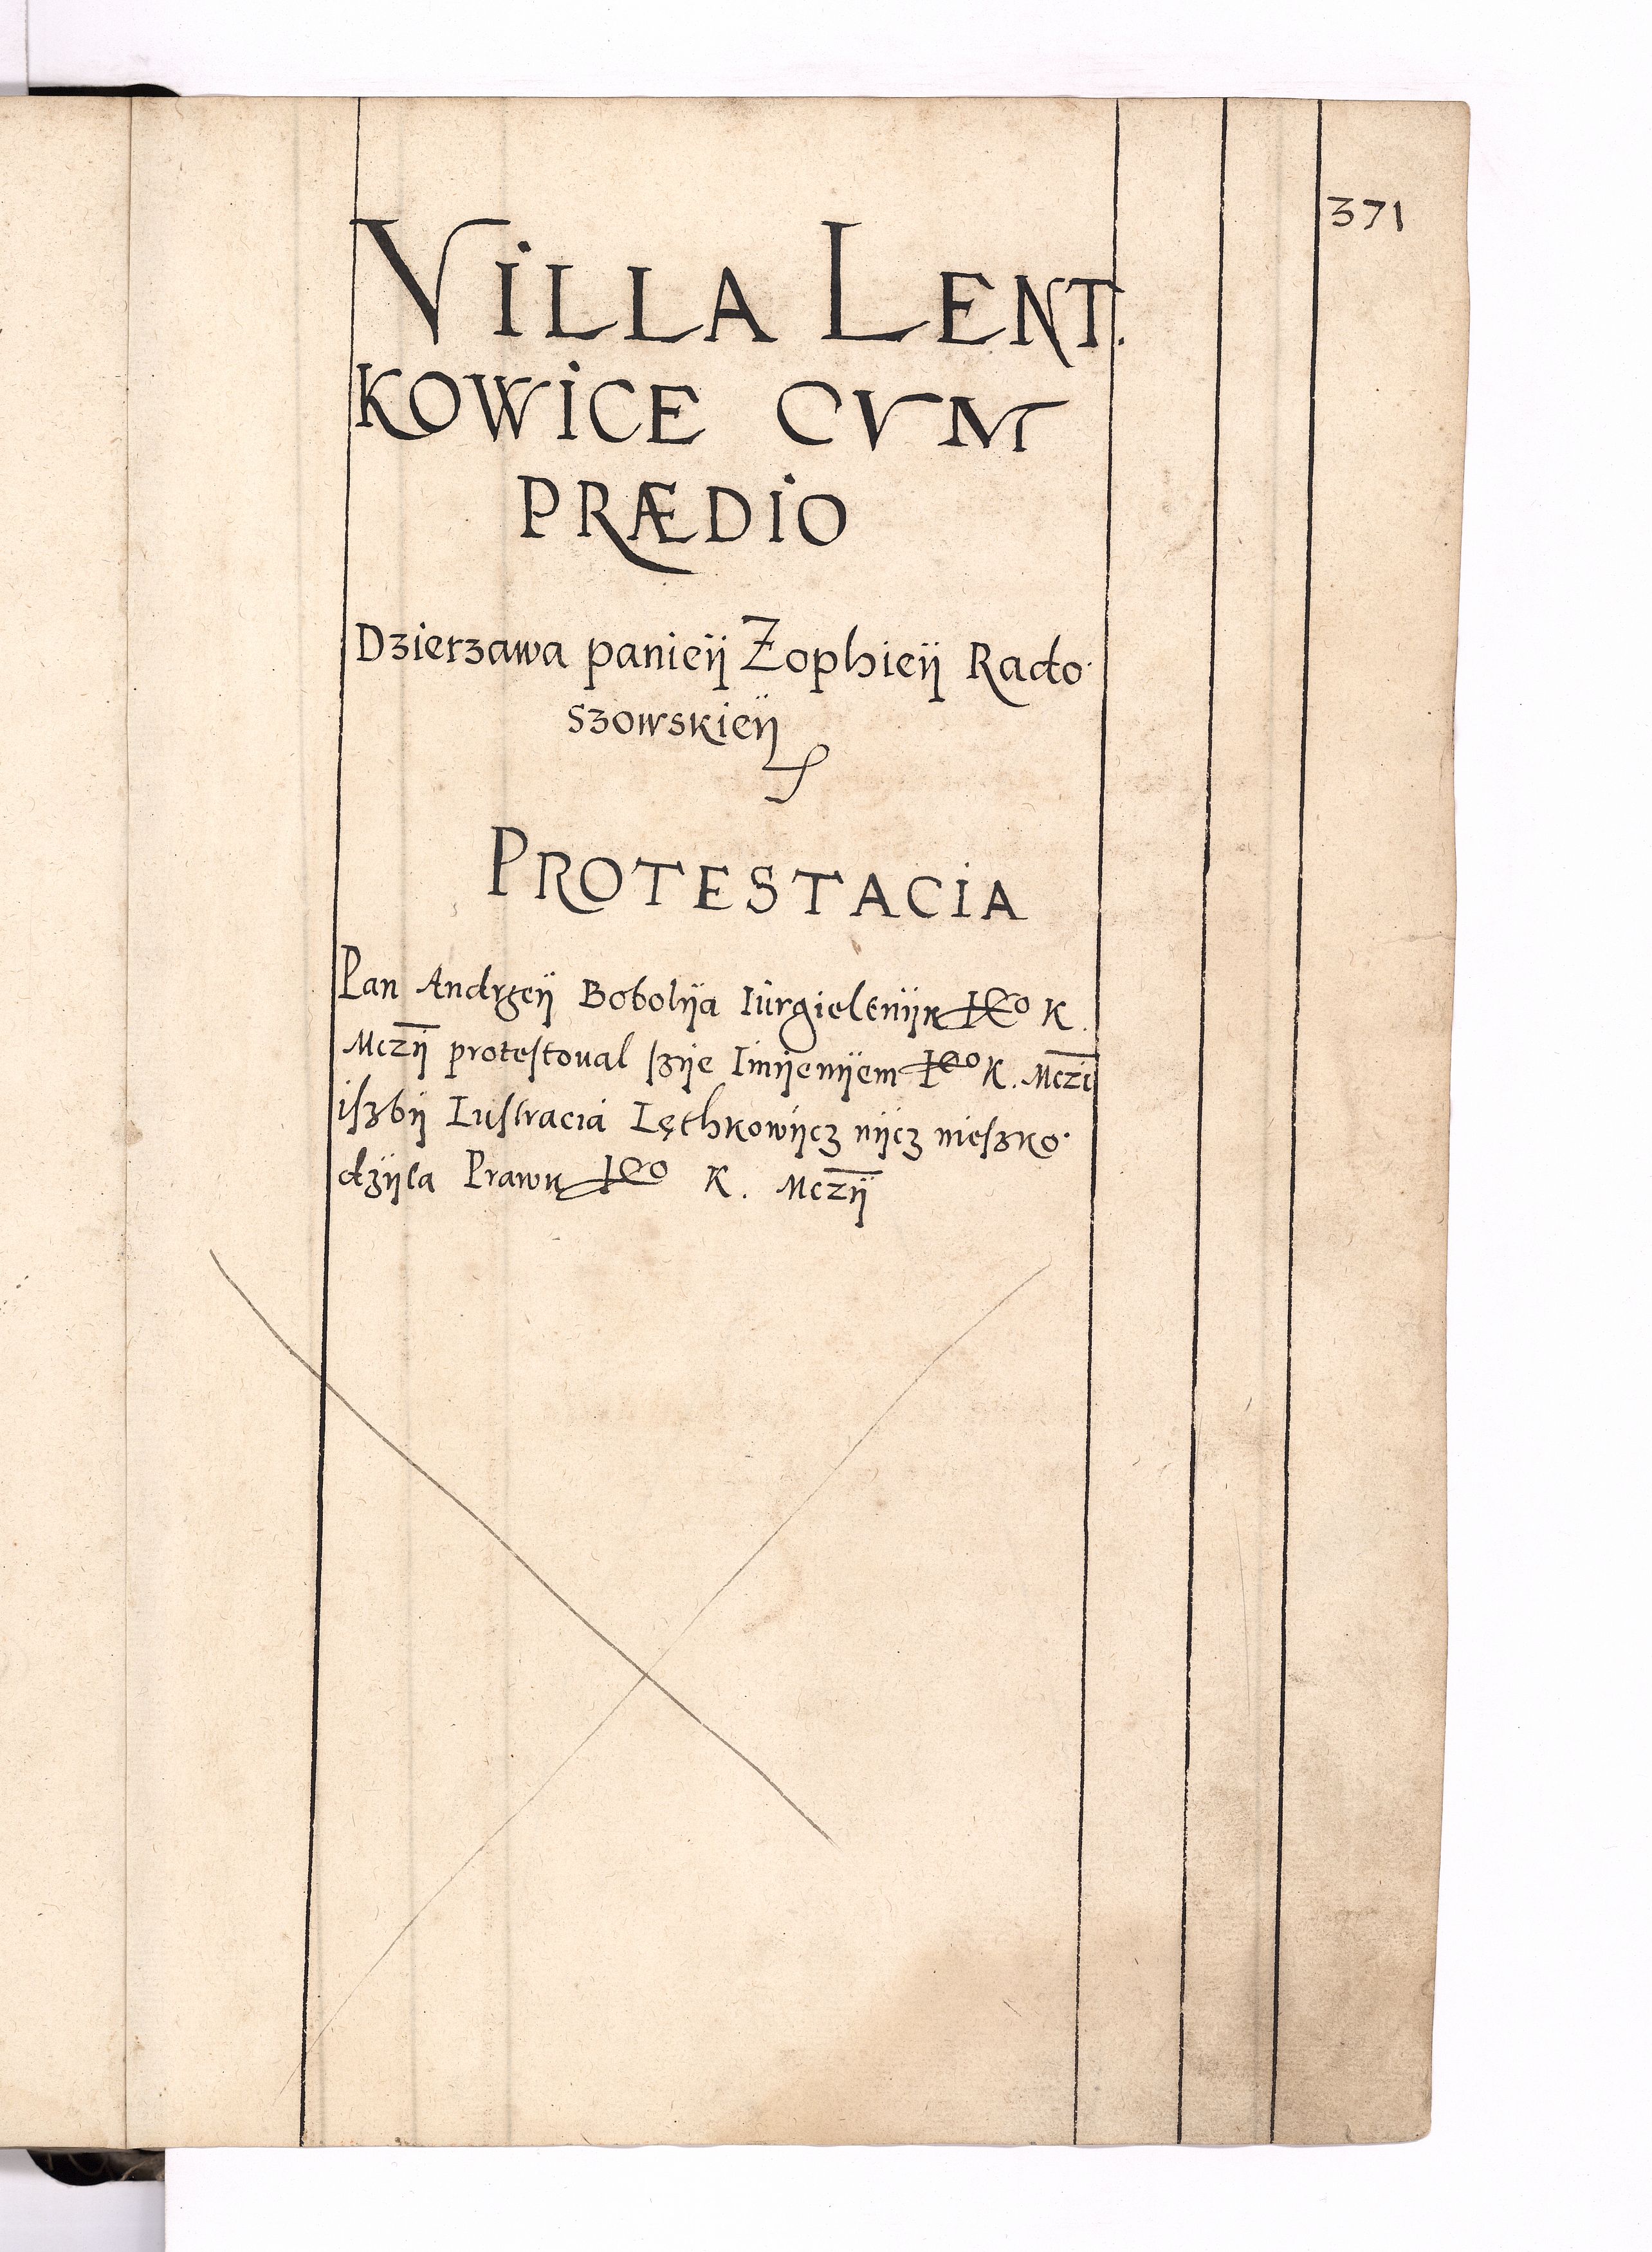 371
VILLA LENT.
KOWICE CVM
PRÆDIO
Dzierzawa panieÿ Zophieÿ Rado·
szowskieÿ
PROTESTACIA
Pan Andrzeÿ Bobolÿa Iurgieltnÿk Ieo K.
Mczÿ protestoval szÿe Imÿenÿem Ieo K. Mczi
iszbÿ Lustracia Lęthkowÿcz nÿcz nieszko·
dzÿla Prawu Ieo K. Mczÿ